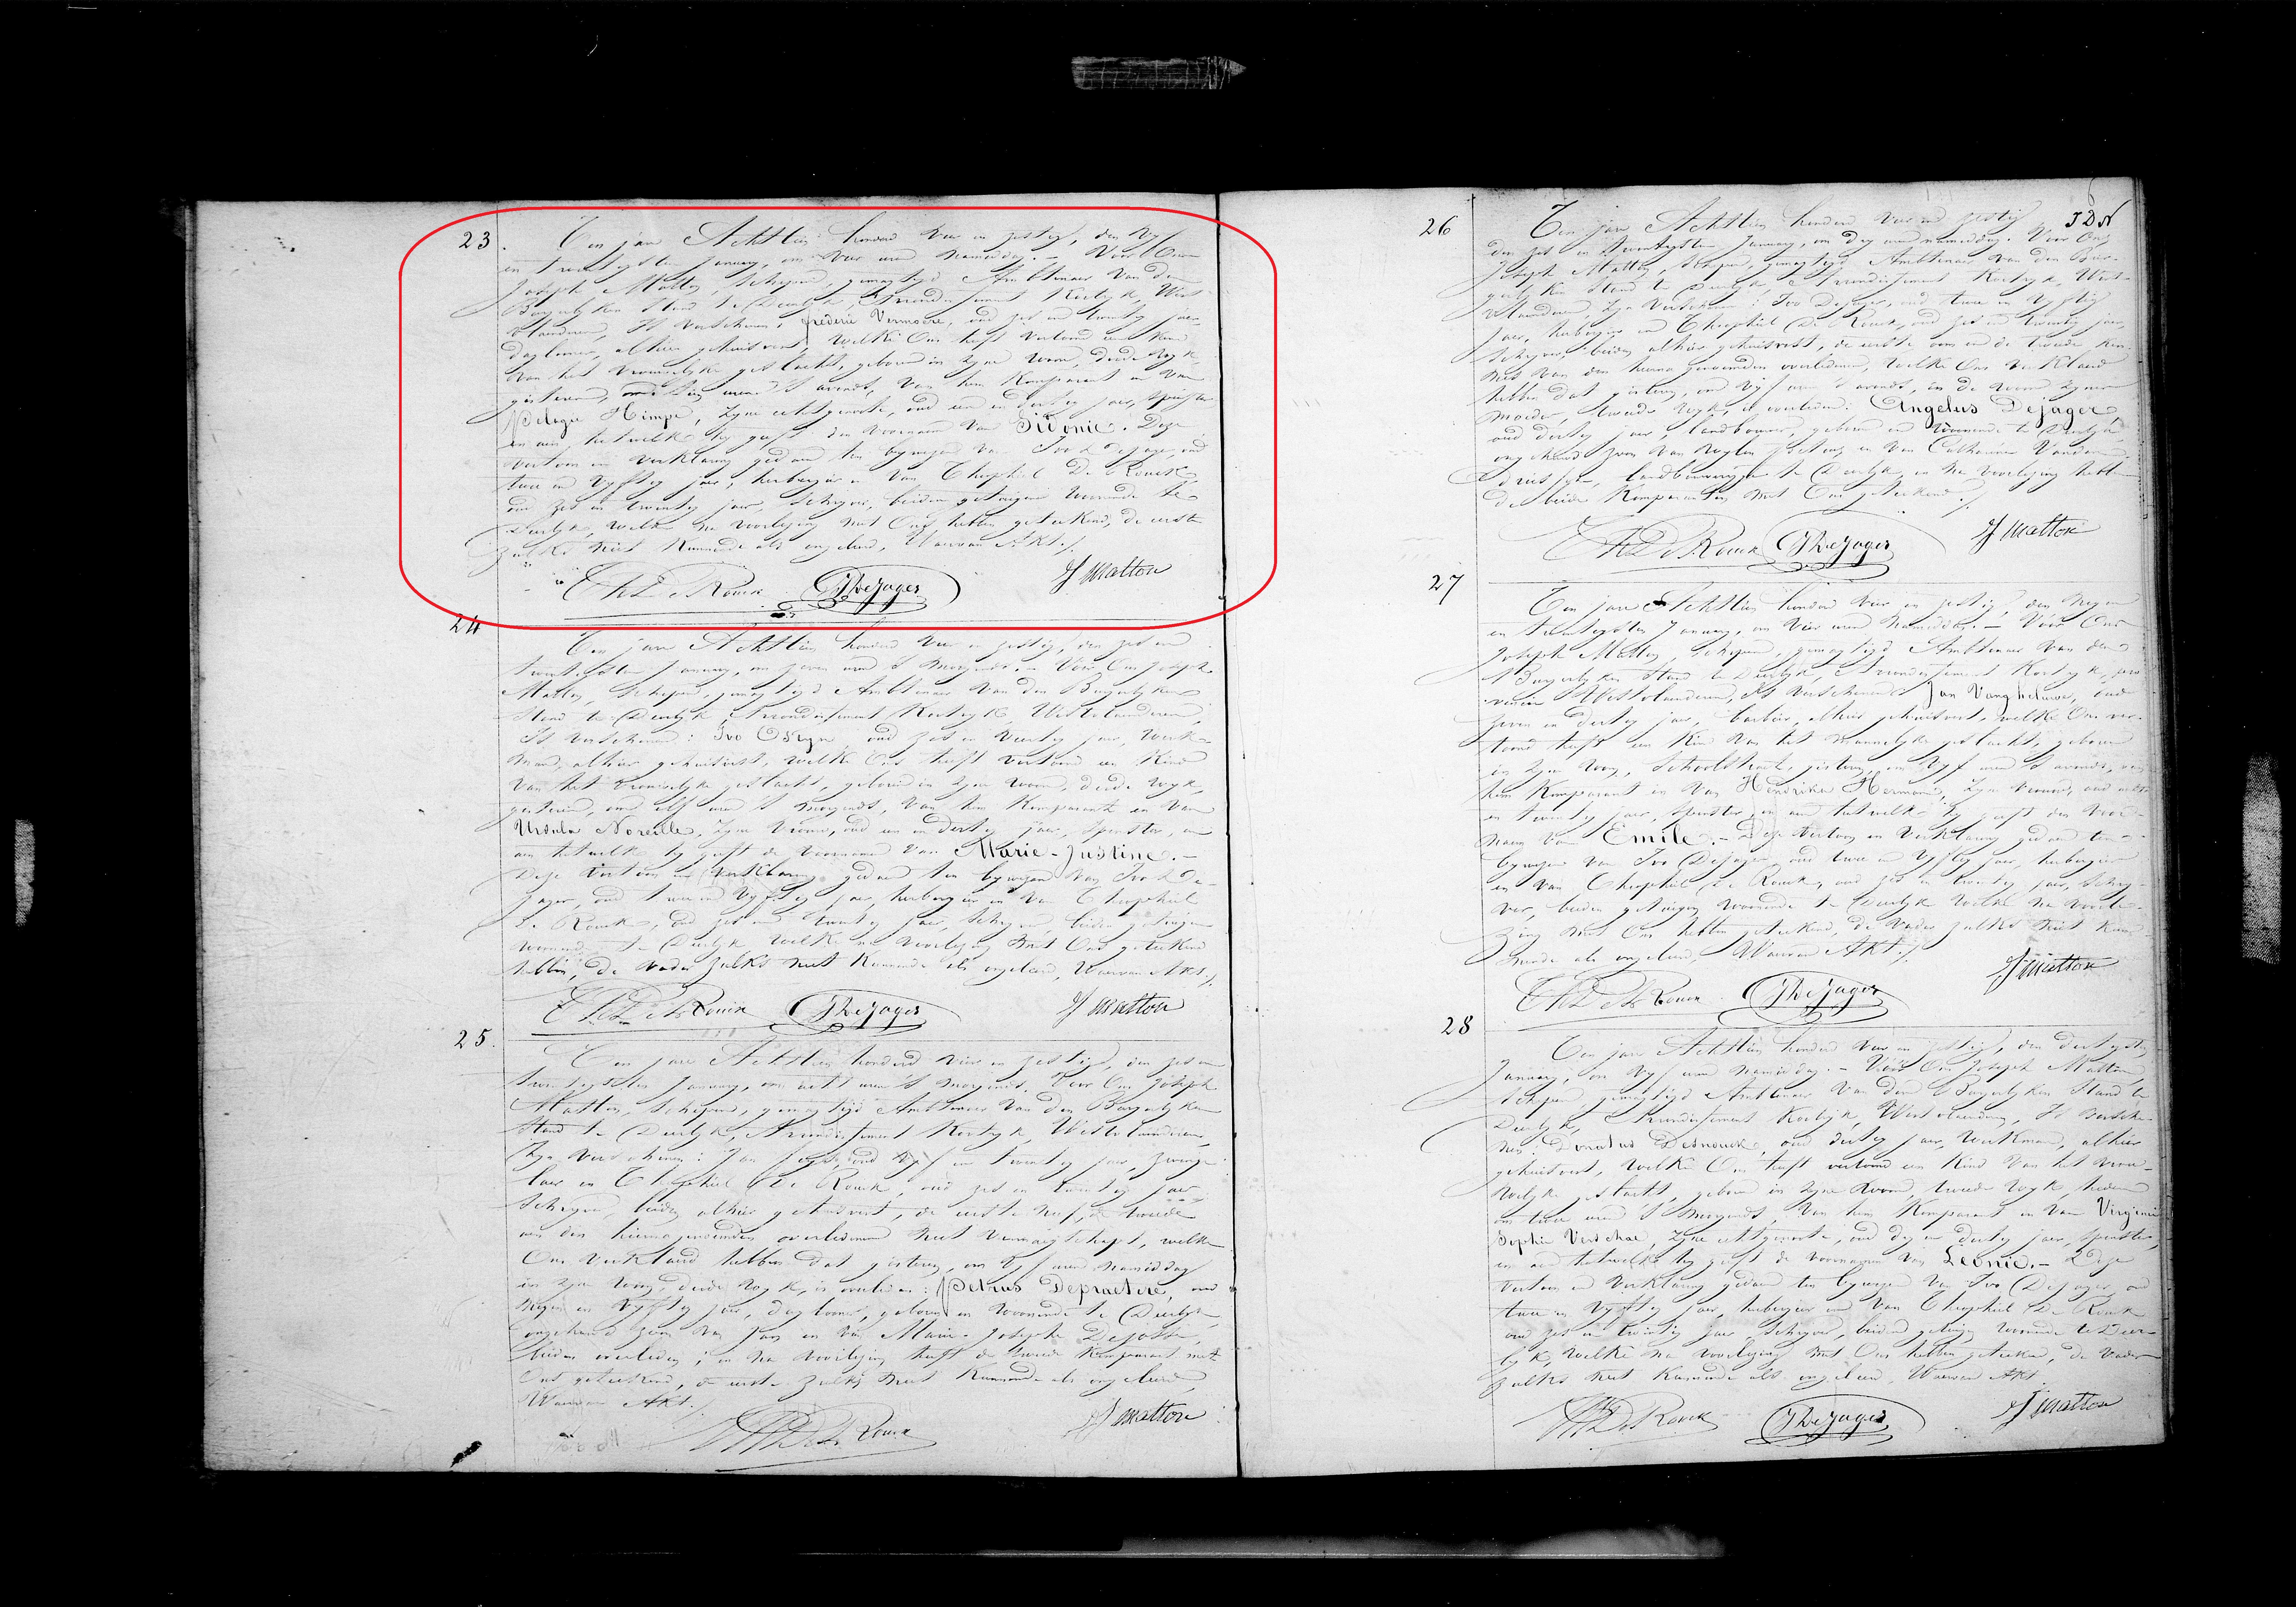 23.
Ten jare Achttien honderd vier en zestig, den vyf
en twintigsten January, om vier uren namiddag. – Voor Ons
Joseph Matton, Schepen, gemagtigd Ambtenaar van den
Burgerlyken Stand te Deerlyk, Arrondissement Kortryk, West-
vlaanderen, Is verschenen: frederic Vermoere, oud zes en twintig jaer,
daglooner, alhier gehuisvest, welke Ons heeft vertoond een kind
van het vrouwelyke geslacht, geboren in zyne woon, derde wyk,
gisteren, om tien uren 's avonds, van hem Komparant en van
Pelagie Himpe, zyne echtgenoote, oud een en dertig jaer, spinster
en aen hetwelke hy geeft den voornaem van Sidonie. Deze
vertoon en verklaring gedaen ten bywezen van Ivo Dejager, oud
twee en vyftig jaer, herbergier en van Theophiel De Rouck,
oud zes en twintig jaer, schryver, beiden getuigen woonende te
Deerlyk, welke na voorlezing met Ons hebben geteekend, de eerste
zulks niet kunnende als ongeleerd, Waervan Akt./.
ThDeRouck IDejager J Matton
24
Ten jare Achttien honderd vier en zestig, den zes en
twintigsten January, om zeven uren 's morgends. – Voor Ons Joseph
Matton, Schepen, gemagtigd Ambtenaar van den Burgerlyken
Stand te Deerlyk, Arrondissement Kortryk, Westvlaanderen,
Is verschenen: Ivo Ostyn oud zes en veertig jaer, werk-
man, alhier gehuisvest, welke Ons heeft vertoond een Kind
van het vrouwelyke geslacht, geboren in zyne woon, derde wyk,
gisteren, om elf uren 's morgends, van hem Komparant en van
Ursula Noreille, zyne vrouw, oud een en dertig jaer, spinster, en
aen hetwelke hy geeft de voornamen van Marie-Justine. –
Deze vertoon en verklaring gedaen ten bywezen van Ivo De-
jager, oud twee en vyftig jaer, herbergier en van Theophiel
De Rouck, oud zes en twintig jaer, schryver, beiden getuigen
woonende te Deerlyk, welke na voorlezing met Ons geteekend
hebben, de vader zulks niet kunnende als ongeleerd, Waervan Akt./.
ThDeRouck IDejager J Matton
25.
Ten jare Achttien honderd vier en zestig, den zes en
twintigsten January, om acht uren 's morgends. Voor Ons Joseph
Matton, Schepen, gemagtigd Ambtenaar van den Burgerlyken
Stand te Deerlyk, Arrondissement Kortryk, Westvlaanderen,
Zyn verschenen: Jan oud vyf en twintig jaer,
en Theophiel De Rouck, oud zes en twintig jaer
schryver, beiden alhier gehuisvest, de eerste neef, de tweede
aen den hiernagenoemden overledenen niet vermaegschapt, welke
Ons verklaerd hebben dat gisteren, om vyf uren namiddag
in zyne woon, derde wyk, is overleden: Petrus Depraetere, oud
negen en vyftig jaer, daglooner, geboren en woonende te Deerlyk,
ongehuwd zoon van Jan en van Marie-Josephe Dejosse,
beiden overleden; en na voorlezing heeft de tweede Komparant met
Ons geteekend, de eerste zulks niet kunnende als ongeleerd,
Waervan Akt./.
ThDeRouck J Matton
6
IDN
26
Ten jare Achttien honderd vier en zestig
den zes en twintigsten January, om dry uren namiddag. Voor Ons
Joseph Matton, Schepen, gemagtigd Ambtenaar van den Bur-
gerlyken Stand te Deerlyk, Arrondissement Kortryk, West-
vlaanderen, Zyn verschenen: Ivo Dejager, oud twee en vyftig
jaer, herbergier en Theophiel De Rouck, oud zes en twintig jaer,
schryver, beiden alhier gehuisvest, de eerste oom en de tweede ken-
nis van den hierna genoemden overledenen, welke Ons verklaerd
hebben dat gisteren, om vyf uren 's avonds, in de woon zyner
moeder, tweede wyk, is overleden: Angelus Dejager,
oud dertig jaer, landbouwer, geboren en woonende te Deerlyk,
ongehuwd zoon van wylen en van Catharina Vanden-
driessche, landbouwersse te Deerlyk, en na voorlezing hebben
de beide Komparanten met Ons geteekend./.
ThDeRouck IDejager J Matton
27
Ten jare Achttien honderd vier en zestig, den negen
en twintigsten January, om vier uren namiddag. – Voor Ons
Joseph Matton, Schepen, gemagtigd Ambtenaar van den
Burgerlyken Stand te Deerlyk, Arrondissement Kortryk, pro-
vincie Westvlaanderen, Is verschenen: Jan Vangheluwe, oud
zeven en dertig jaer, barbier, alhier gehuisvest, welke Ons ver-
toond heeft een Kind van het mannelyke geslacht, geboren
in zyne woon, Schoolstraet, gisteren, om vyf uren 's avonds, van
hem Komparant en van Hendrika Hermans, zyne vrouw, oud acht
en twintig jaer, spinster, en aen hetwelke hy geeft den voor-
naem van Emile. – Deze vertoon en verklaring gedaen ten
bywezen van Ivo Dejager, oud twee en vyftig jaer, herbergier
en van Theophiel De Rouck, oud zes en twintig jaer, schry-
ver, beiden getuigen woonende te Deerlyk welke na voorle-
zing met Ons hebben geteekend, de vader zulks niet kun-
nende als ongeleerd, Waervan Akt./.
ThDeRouck IDejager J Matton
28
Ten jare Achttien honderd vier en zestig, den dertigsten
January, om vyf uren namiddag. – Voor Ons Joseph Matton,
Schepen, gemagtigd Ambtenaar van den Burgerlyken Stand te
Deerlyk, Arrondissement Kortryk, Westvlaanderen, Is versche-
nen: Donatus Desnouck, oud dertig jaer, werkman, alhier
gehuisvest, welke Ons heeft vertoond een Kind van het vrou-
welyke geslacht, geboren in zyne woon, tweede wyk, heden
om twee uren 's morgends, van hem Komparant en van Virginie
Sophie Verschae, zyne echtgenoote, oud dry en dertig jaer, spinster,
en aen hetwelke hy geeft de voornaem van Leonie. – Deze
vertoon en verklaring gedaen ten bywezen van Ivo Dejager, oud
twee en vyftig jaer, herbergier en van Theophiel De Rouck
oud zes en twintig jaer, schryver, beiden getuigen woonende te Deer-
lyk, welke na voorlezing met Ons hebben geteekend, de vader
zulks niet kunnende als ongeleerd, Waervan Akt.
ThDeRouck IDejager J Matton